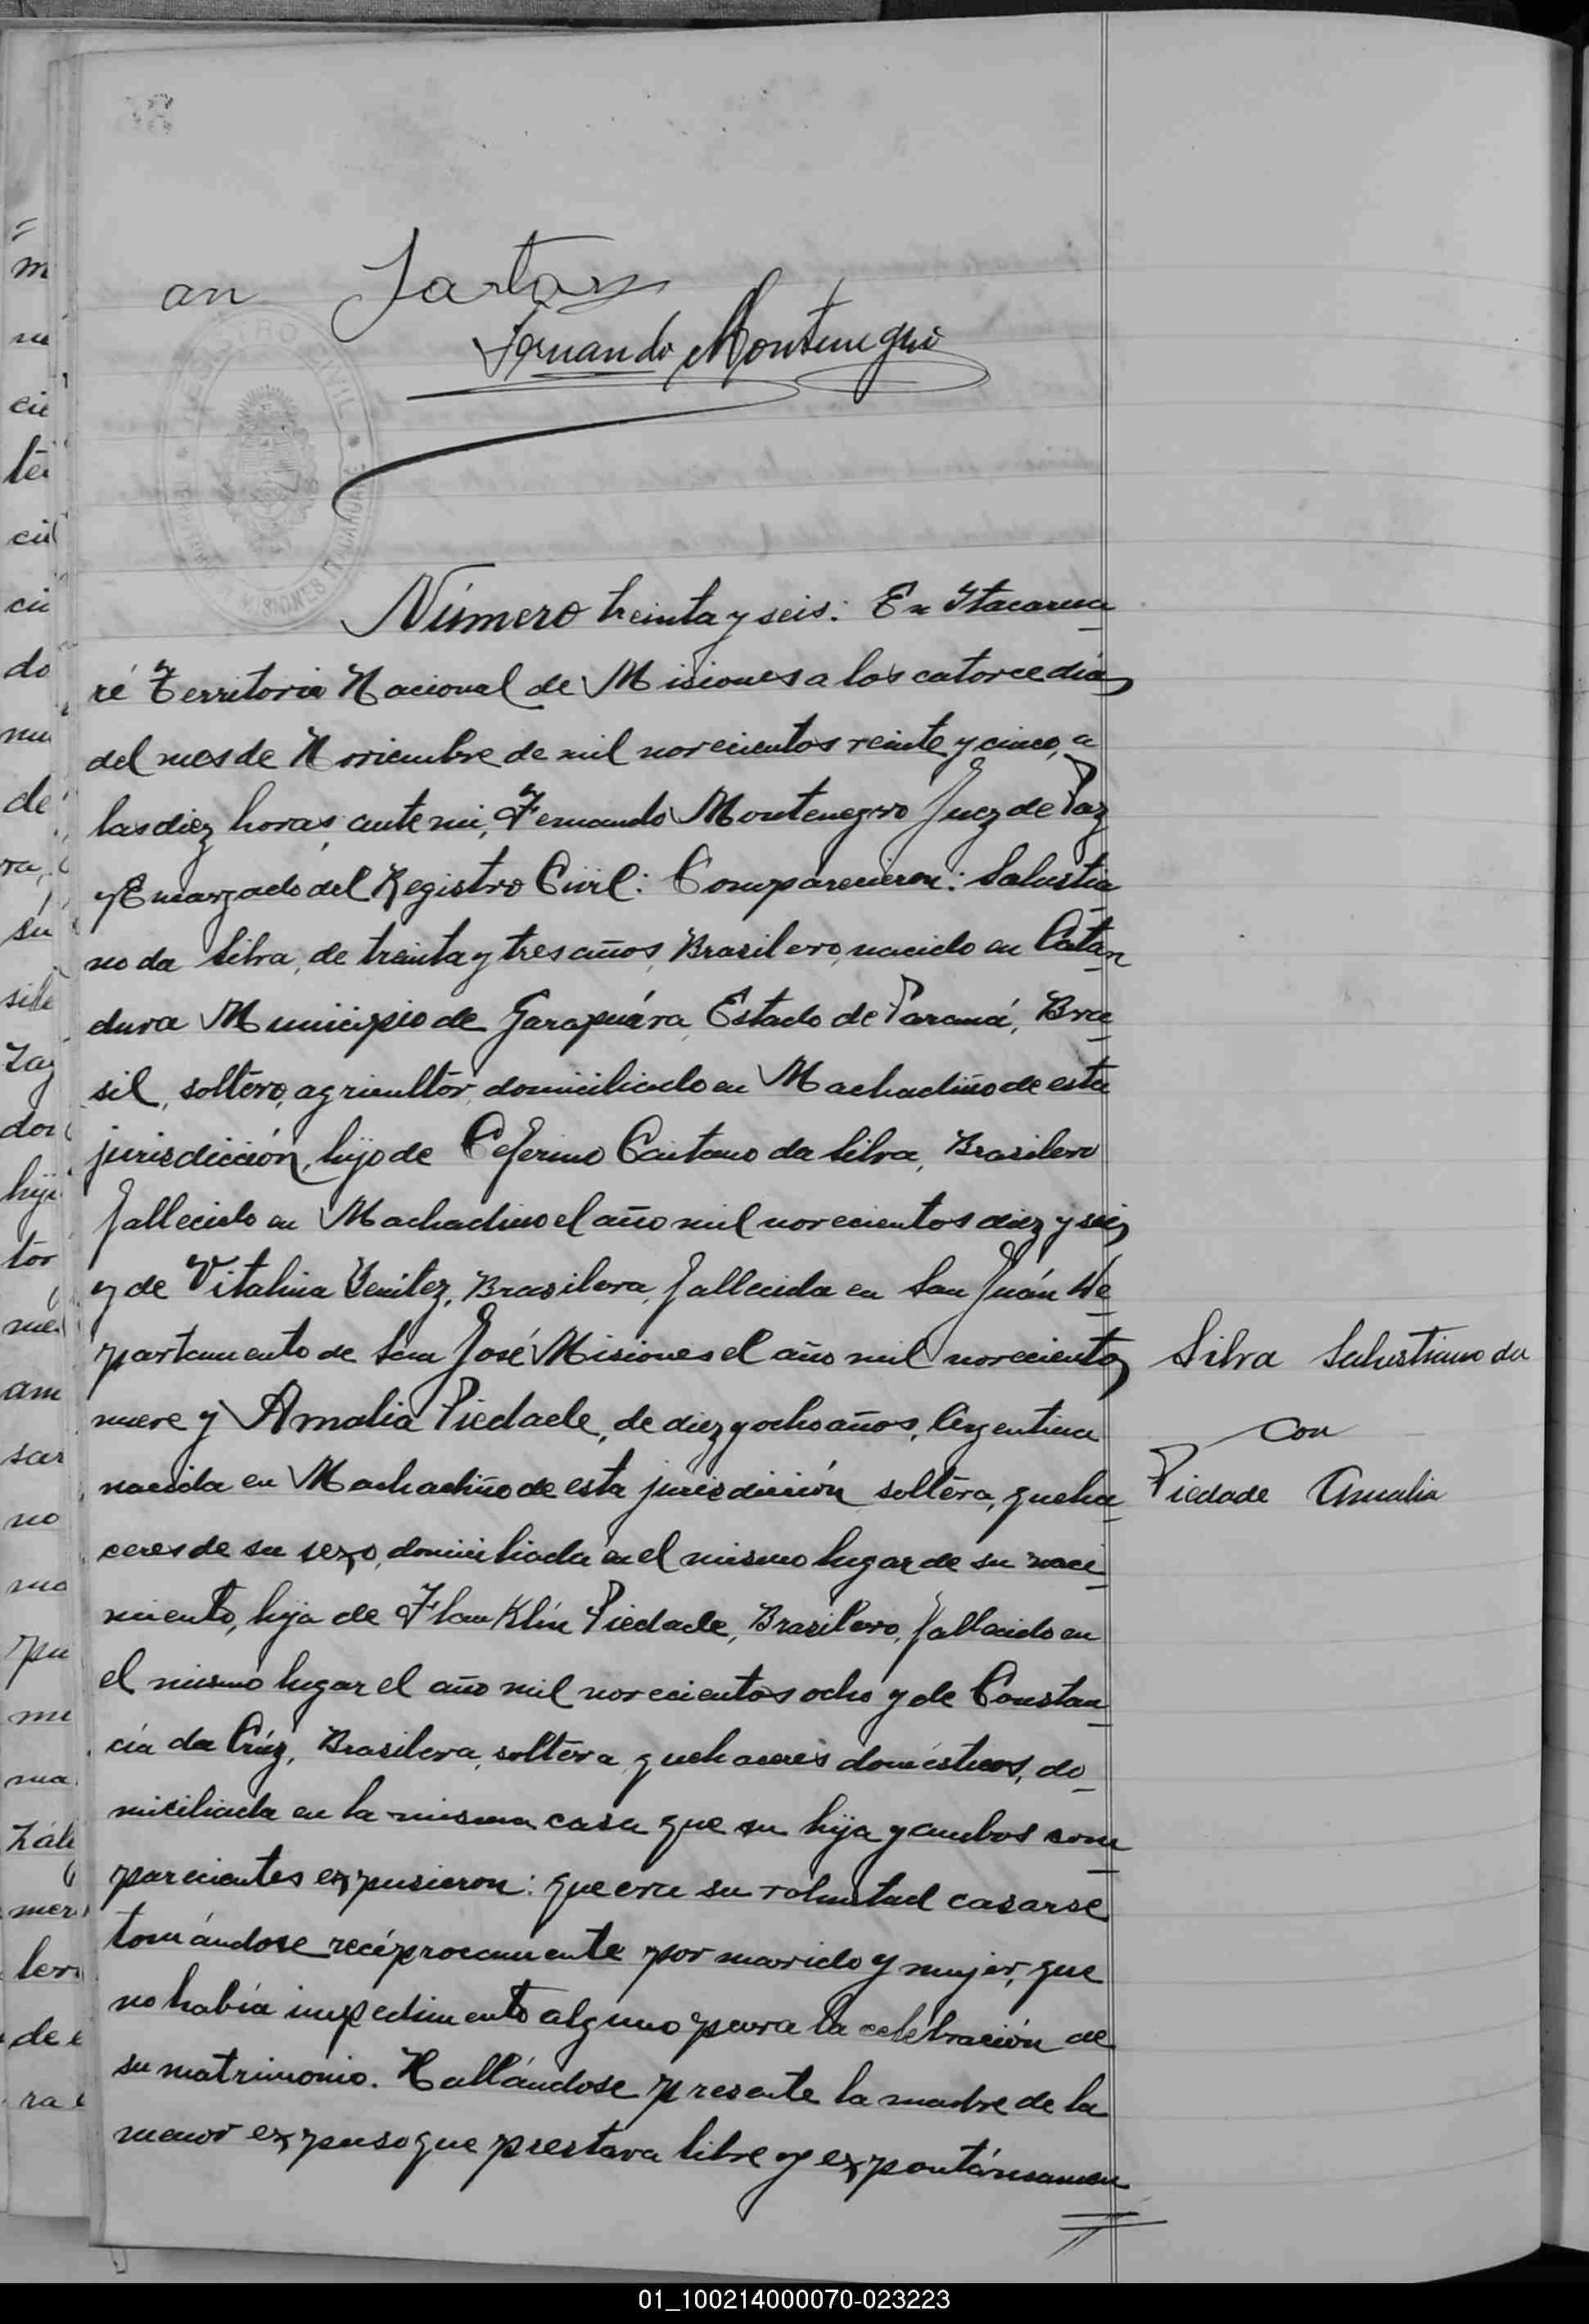 an
Fernando Montenegro
REGISTRO CIVIL
MISIONES ITACARUARE
Número treinta y seis: En Itacarua
ré Territorio Nacional de Misiones a los catorce días
del mes de Noviembre de mil novecientos veinte y cinco, a
las diez horas, ante mi, Fernando Montenegro Juez de Paz
y Encargado del Registro Civil: Comparecieron: Salustia
no da Silva, de treinta y tres años, Brasilero, nacido en Catan
duva Municipio de Garapuáva, Estado de Paraná, Bra
sil, soltero, agricultor, domiciliado en Machadiño de esta
jurisdicción, hijo de Ceferino Caitano da Silva, Brasilero
fallecido en Machadiño el año mil novecientos diez y seis
y de Vitalina Benítez, Brasilera, fallecida en San Juán De
partamento de San José Misiones el año mil novecientos
nueve y Amalia Piedade, de diez y ocho años, Argentina
nacida en Machadiño de esta jurisdicción, soltera, queha
ceres de su sexo, domiciliada en el mismo lugar de su naci
miento, hija de Flanklín Piedade, Brasilero, fallecido en
el mismo lugar el año mil novecientos ocho y de Constan
cia da Crúz, Brasilera, soltera, quehaceres domésticos, do
miciliada en la misma casa que su hija y ambos com
parecientes expusieron: que era su voluntad casarse
tomándose recíprocamente por marido y mujer, que
no había impedimento alguno para la celebración de
su matrimonio. Hallándose presente la madre de la
menor expuso que prestava libre y expontáneamen
Silva Salustiano da
con
Piedade Amalia
01_100214000070-023223